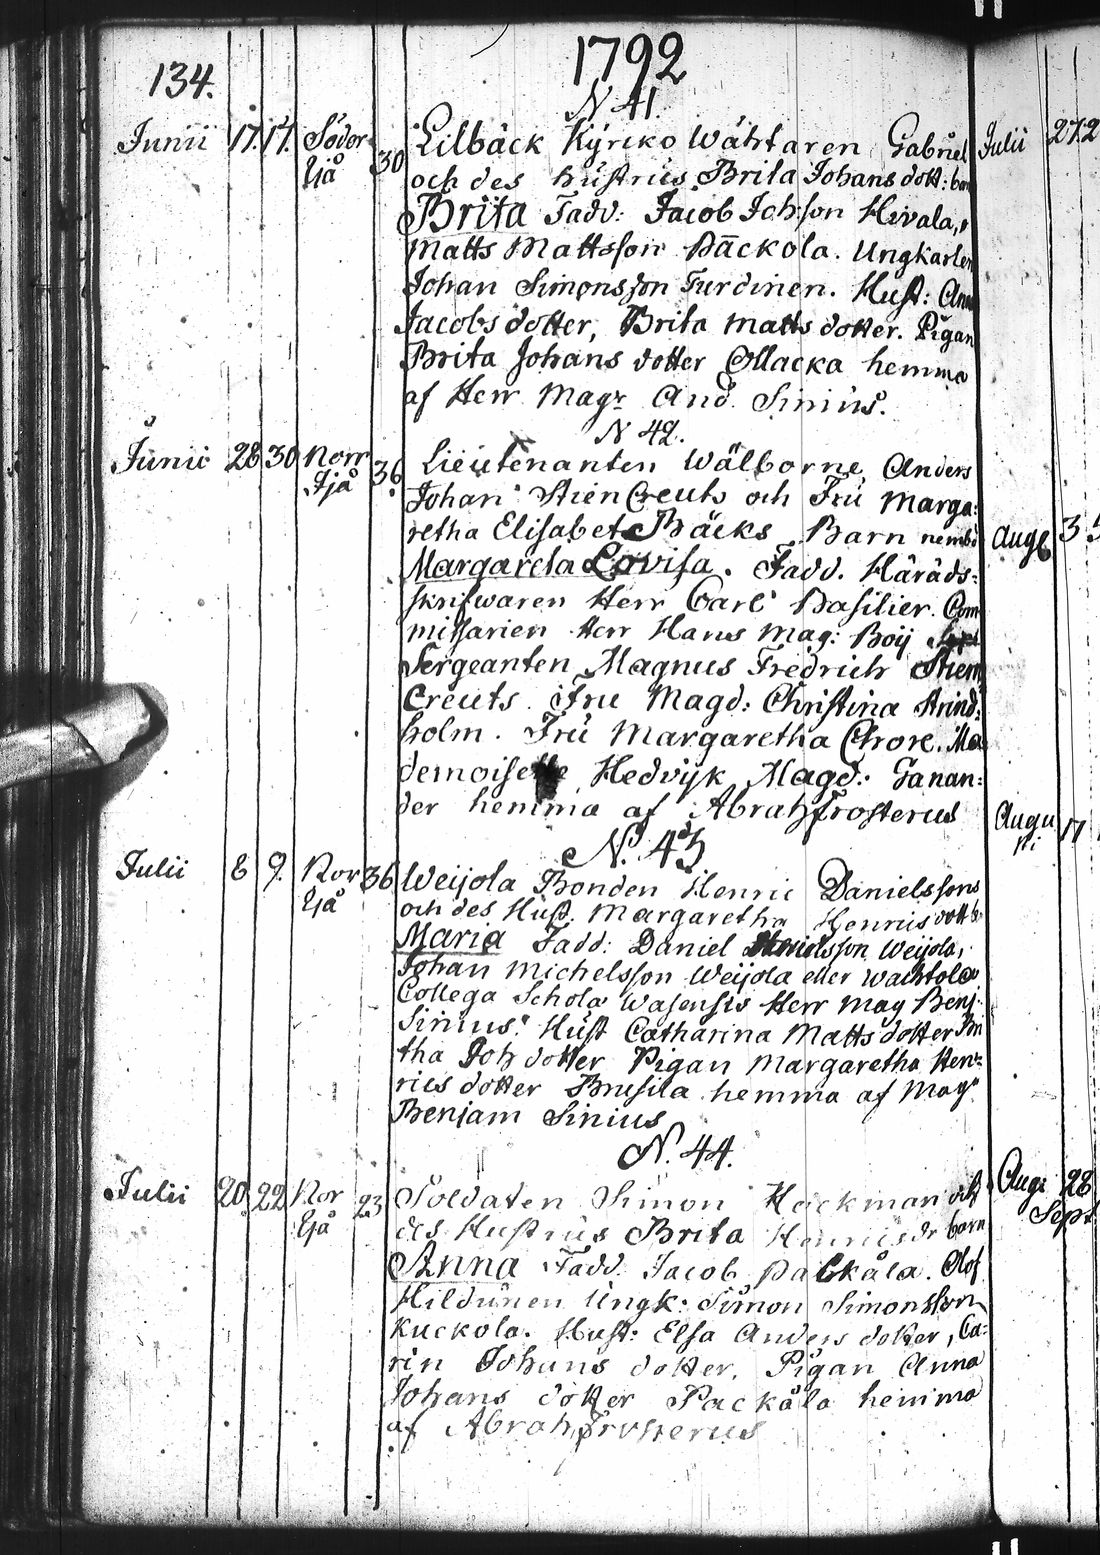 134.
1792
N 41.
Junii 17. 17. Söder 30 Lilbäck Kyrko Wäktaren Gabriel
Ljå och des hustrus Brita Johans dott: barn
Brita Fadd: Jacob Joh:son Hivala,
Matts Mattsson Päckola. Ungkarlen
Johan Simonsson Turdinen. Hust: Anna
Jacobs dotter, Brita Matts dotter. Pigan
Brita Johans dotter Ollacka hemma
af Herr Magr And. Sinius.
N 42.
Junii 28 30 Norr 36 Lieutenanten Wälborne Anders
Ijå Johan StienCreuts och Fru Marga:
retha Elisabet Bäcks Barn nembd
Margareta Lovisa. Fadd. Härads:
skrifwaren Herr Carl Basilier. Com
missarien Herr Hans Mag: Boij
Sergeanten Magnus Fredrich Stien
Creuts. Fru Magd: Christina Strind:
holm. Fru Margaretha Chore. Ma
demoiselle Hedvijk Magd: Ganan:
der hemma af Abrah Frosterus
N. 43
Julii 8 9. Nor 36 Weijola Bonden Henric Danielssons
Ljå och des Hust. Margaretha Henrics dott b:
Maria Fadd: Daniel Danielsson Weijola,
Johan Michelsson Weijola eller Wachtola
Collega Schola Wasensis Herr Mag Benj:
Sinius. Hust Catharina Matts dotter Bri
tha Joh dotter Pigan Margaretha Hen:
rics dotter Brusila hemma af Magr
Benjam Sinius
N. 44.
Julii 20. 22 Nor 23 Soldaten Simon Hackman och
Ljå des Hustrus Brita Henricsdr barn
Anna Fadd. Jacob Päckåla. Olof
Hildunen Ungk: Simon Simonsson
Kuckola. Hust: Elsa Anders dotter, Ca:
rin Johans dotter, Pigan Anna
Johans dotter Packåla hemma
af Abrah Frosterus
Julii 27. 2
Aug 3 5
Augu 17
sti
Aug: 28
Sept